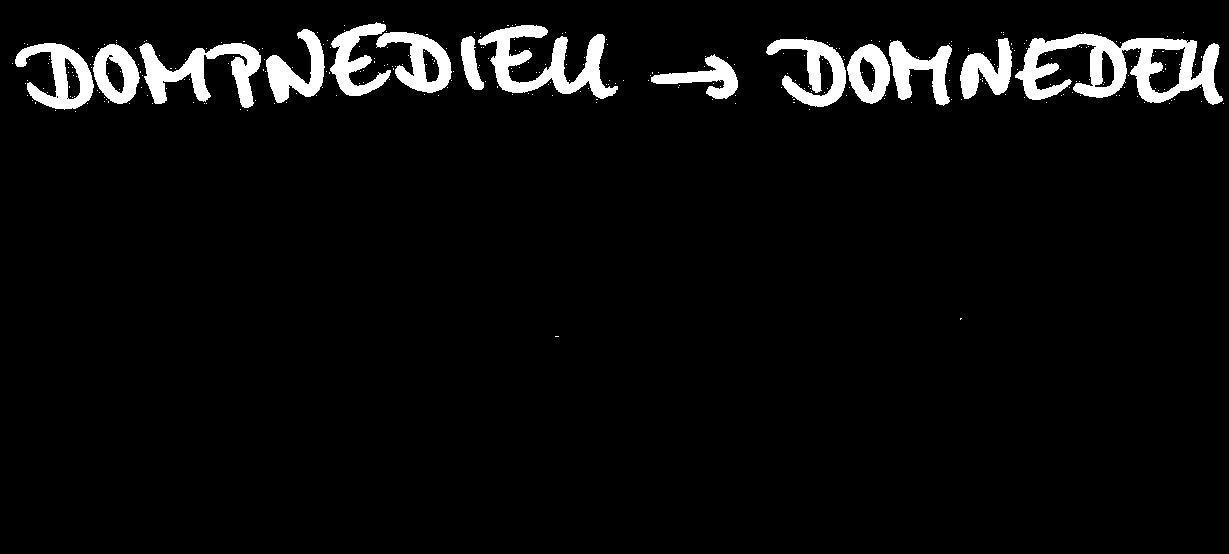 DOMPNEDIEU → DOMNEDEU